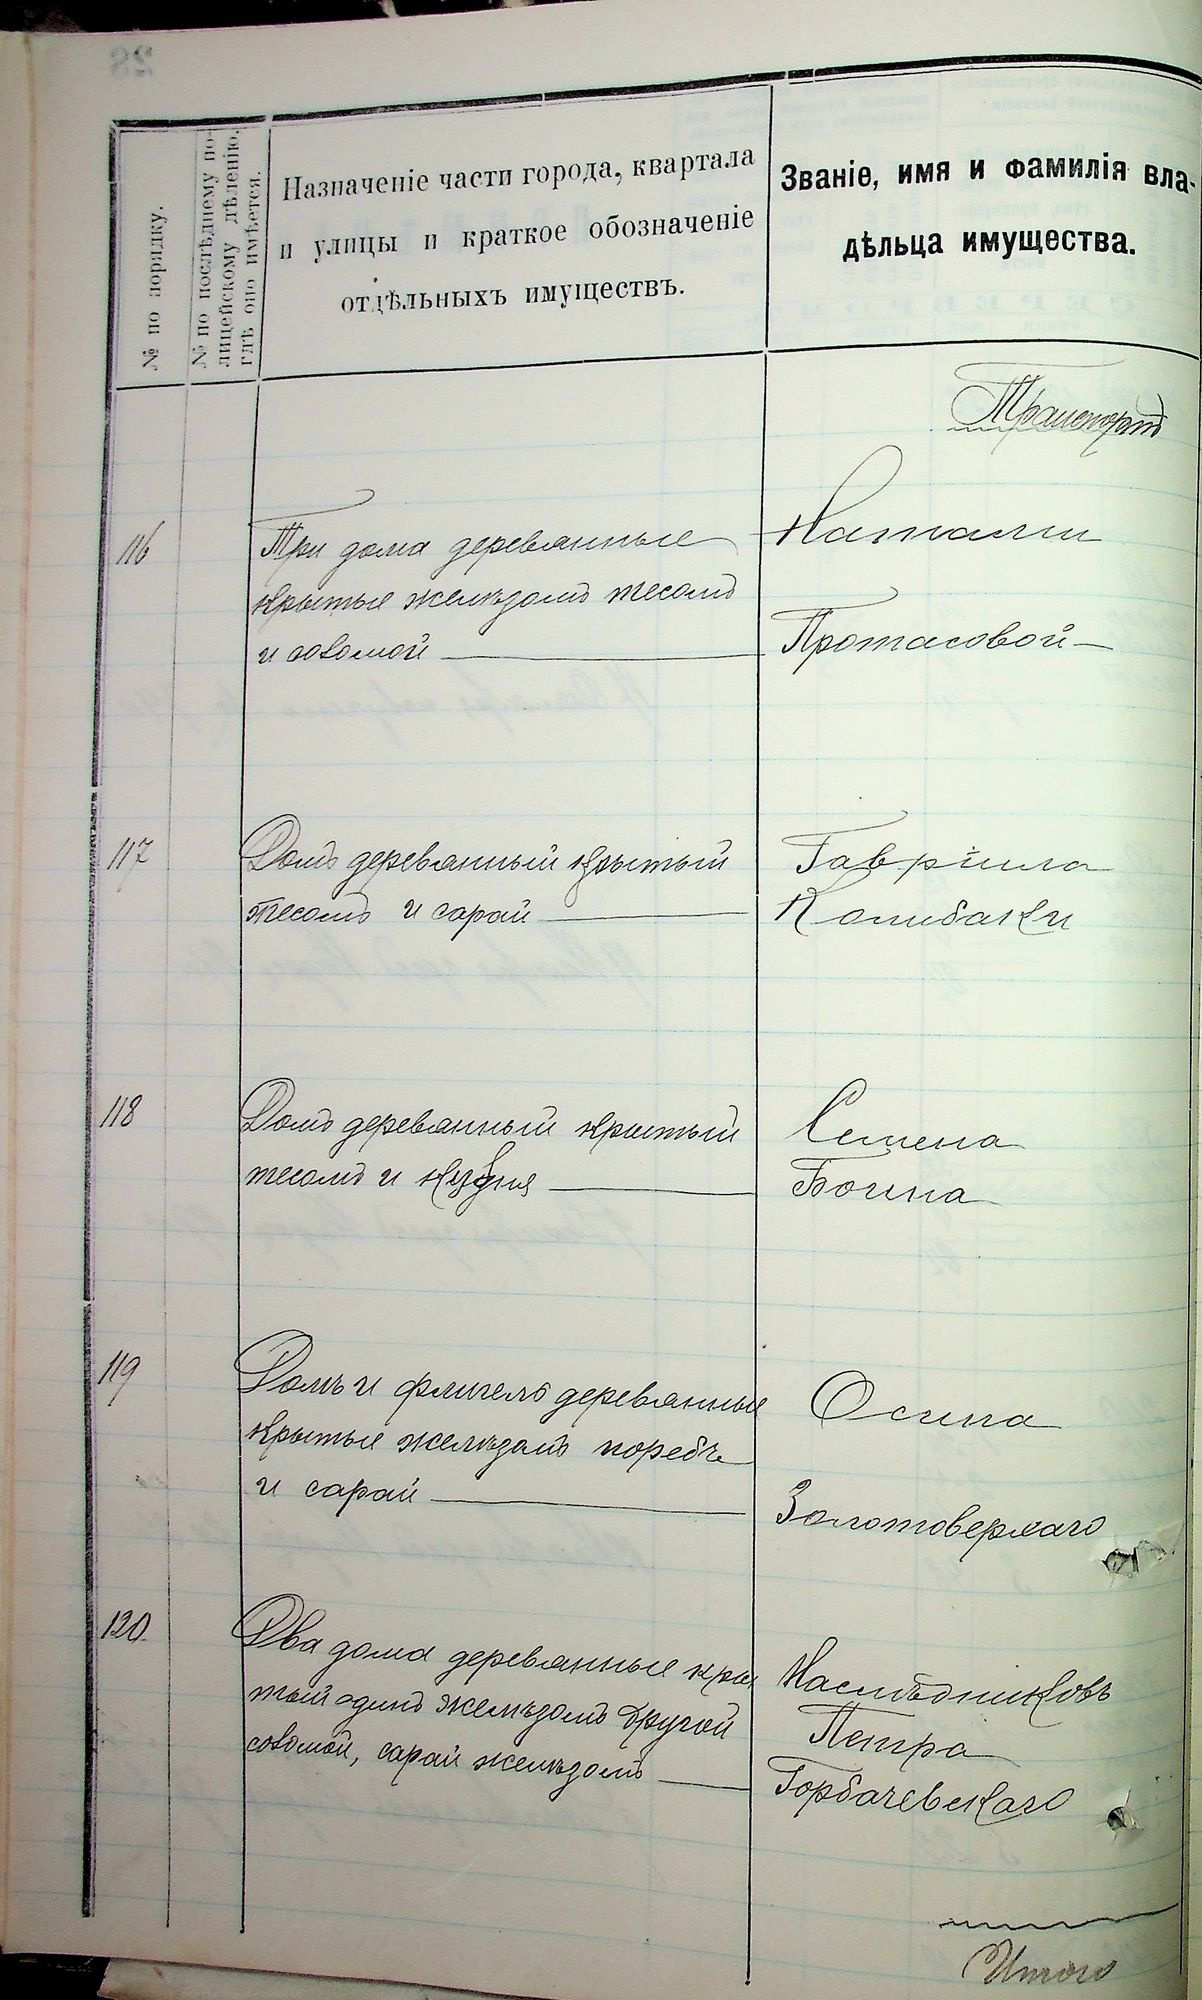 № по порядку.
№ по послѣднему по-
лицейскому дѣленію,
гдѣ оно имѣется.
Назначеніе части города, квартала
и улицы и краткое обозначеніе
отдѣльныхъ имуществъ.
Званіе, имя и фамилія вла-
дѣльца имущества.
Транспортъ
116
Три дома деревянные
крытые желѣзомъ тесомъ
и соломой
Наталии
Протасовой
117
Домъ деревянный крытый
тесомъ и сарай
Гавріила
Колибаки
118
Домъ деревянный крытый
тесомъ и кузня
Семена
119
Домъ и флигель деревянные
крытые желѣзомъ погребъ
и сарай
Осипа
Золотоверхаго
120.
Два дома деревянные кры
тый одинъ желѣзомъ другой
соломой, сарай желѣзомъ
Наслѣдниковъ
Петра
Горбачевскаго
Итого